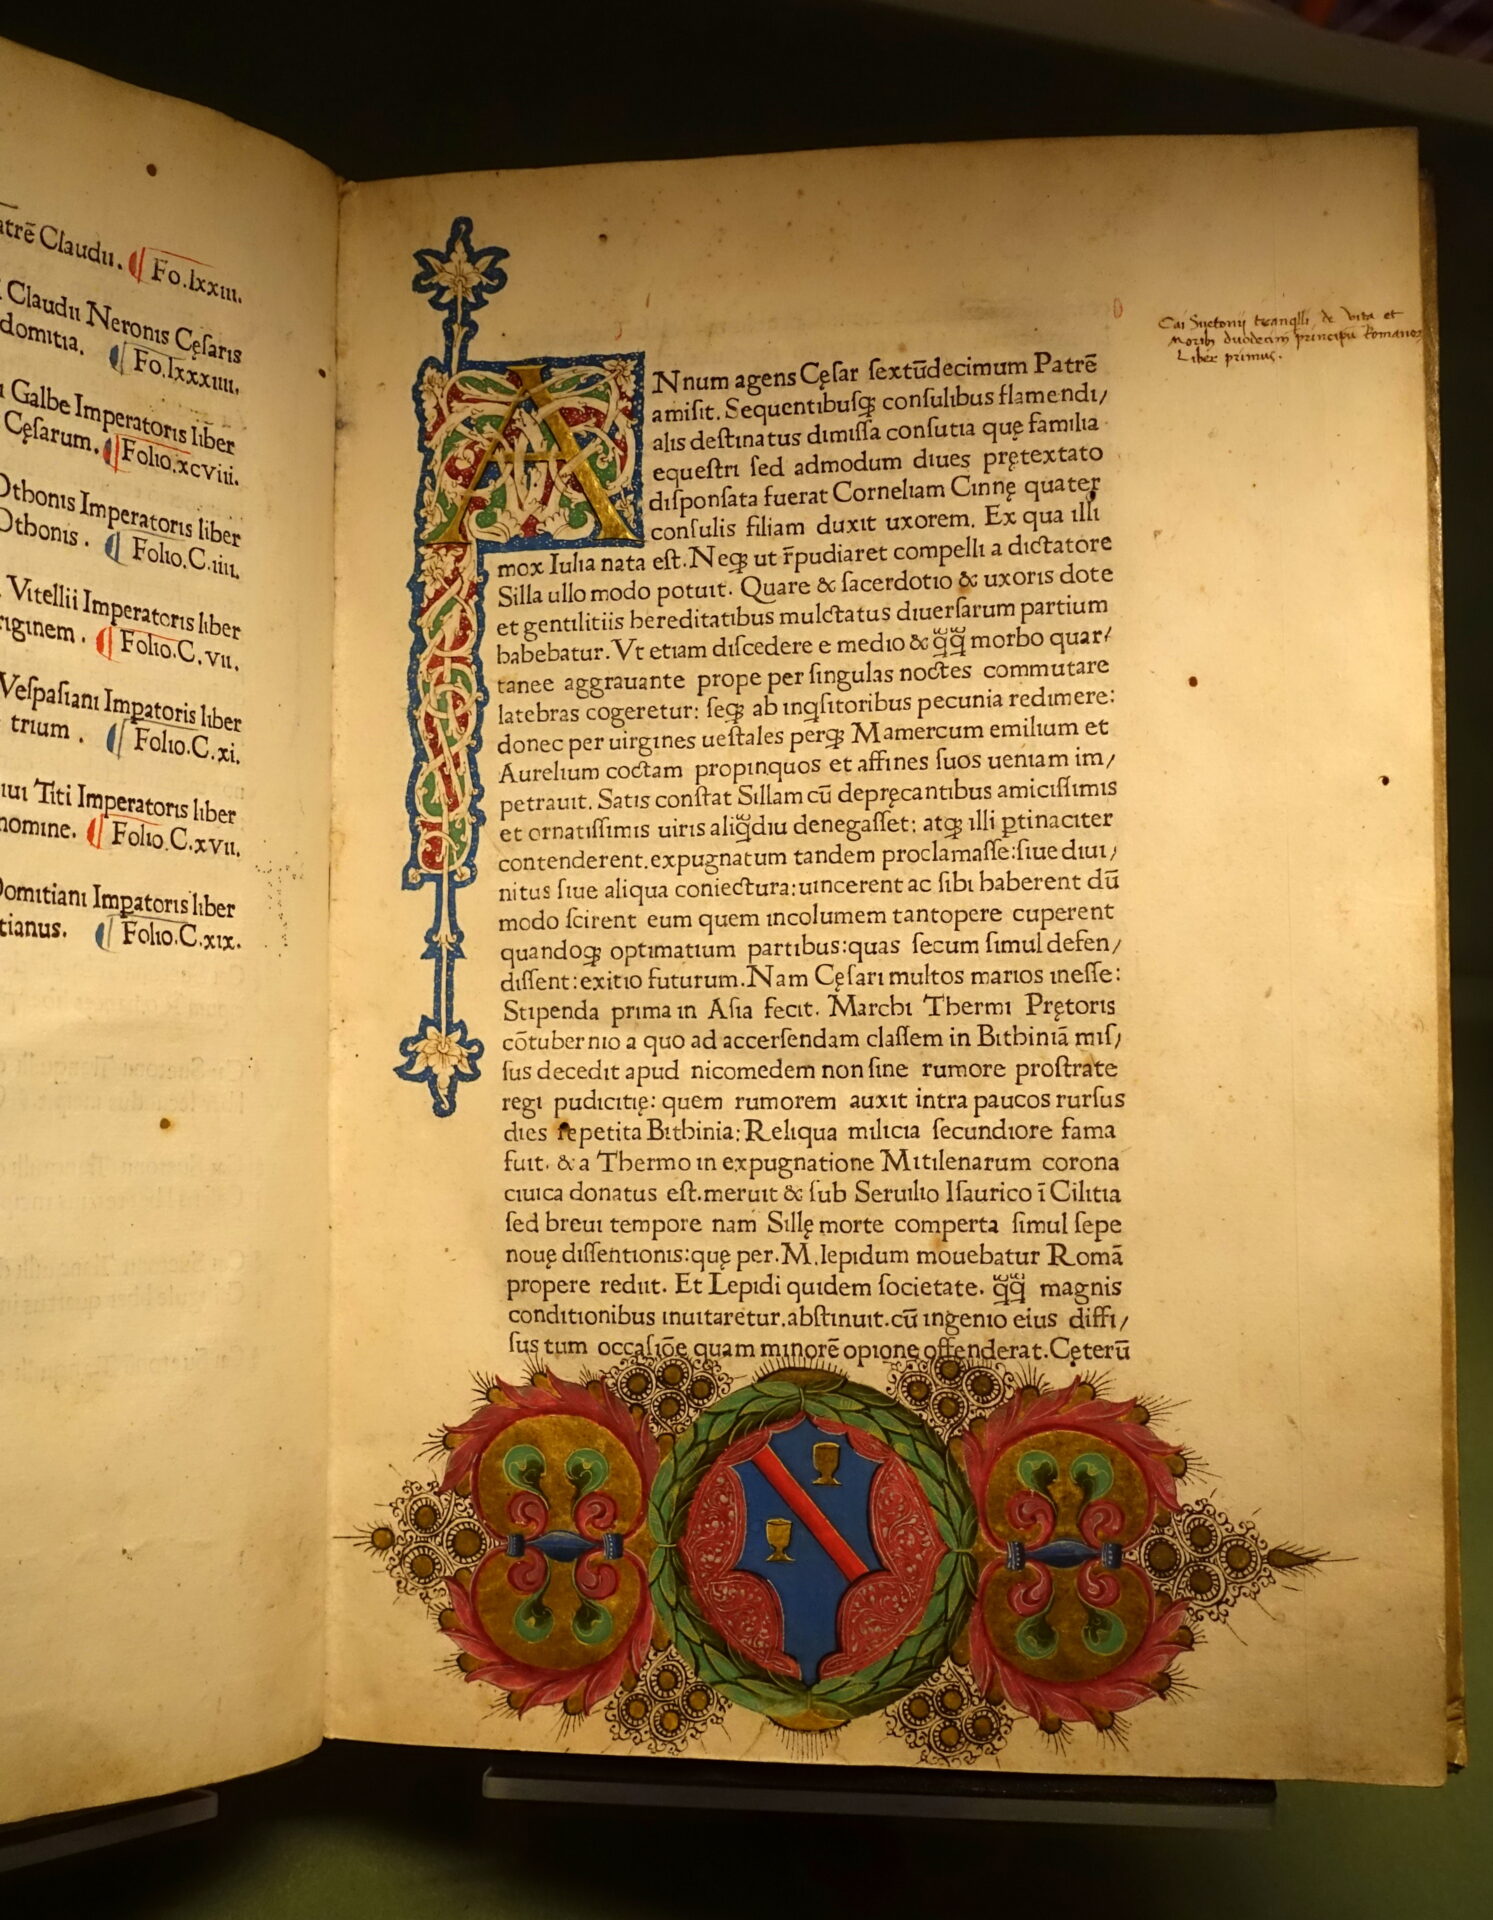 atrē Claudii. Fo.lxxiii.
Claudii Neronis Cęſaris
domitia. Fo.lxxxiiii.
Galbe Imperatoris liber
Cęſarum. Folio.xcviii.
Othonis Imperatoris liber
Othonis. Folio.C.iiii.
Vitellii Imperatoris liber
riginem. Folio.C.vii.
Veſpaſiani Impatoris liber
trium. Folio.C.xi.
iui Titi Imperatoris liber
nomine. Folio.C.xvii.
Domitiani Impatoris liber
tianus. Folio.C.xix.
Cai Suetonii tranqlli de vita et
Morib duodecim principū Romanoꝝ
Liber primus.
ANnum agens Cęſar ſextūdecimum Patrē
amiſit. Sequentibuſqꝫ conſulibus flamendi/
alis deſtinatus dimiſſa conſutia quę familia
equeſtri ſed admodum diues prętextato
diſponſata fuerat Corneliam Cinnę quater
conſulis filiam duxit uxorem. Ex qua illi
mox Iulia nata eſt. Neqꝫ ut r̄pudiaret compelli a dictatore
Silla ullo modo potuit. Quare & ſacerdotio & uxoris dote
et gentilitiis hereditatibus mulctatus diuerſarum partium
habebatur. Vt etiam diſcedere e medio & qͣqͣ morbo quar/
tanee aggrauante prope per ſingulas noctes commutare
latebras cogeretur: ſeqꝫ ab inqſitoribus pecunia redimere:
donec per uirgines ueſtales perqꝫ Mamercum emilium et
Aurelium coctam propinquos et affines ſuos ueniam im/
petrauit. Satis conſtat Sillam cū depręcantibus amiciſſimis
et ornatiſſimis uiris aliqͣdiu denegaſſet: atqꝫ illi ꝑtinaciter
contenderent. expugnatum tandem proclamaſſe: ſiue diui/
nitus ſiue aliqua coniectura: uincerent ac ſibi haberent dū
modo ſcirent eum quem incolumem tantopere cuperent
quandoqꝫ optimatium partibus: quas ſecum ſimul defen/
diſſent: exitio futurum. Nam Cęſari multos marios ineſſe:
Stipenda prima in Aſia fecit. Marchi Thermi Prętoris
cōtubernio a quo ad accerſendam claſſem in Bithiniā miſ/
ſus decedit apud nicomedem non ſine rumore proſtrate
regi pudicitię: quem rumorem auxit intra paucos rurſus
dies repetita Bithinia: Reliqua milicia ſecundiore fama
fuit. & a Thermo in expugnatione Mitilenarum corona
ciuica donatus eſt. meruit & ſub Seruilio Iſaurico ī Cilitia
ſed breui tempore nam Sillę morte comperta ſimul ſepe
nouę diſſentionis: quę per. M. lepidum mouebatur Romā
propere rediit. Et Lepidi quidem ſocietate. qͣqͣ magnis
conditionibus inuitaretur. abſtinuit. cū ingenio eius diffi/
ſus tum occaſiōe quam minorē opione offenderat. Cęterū